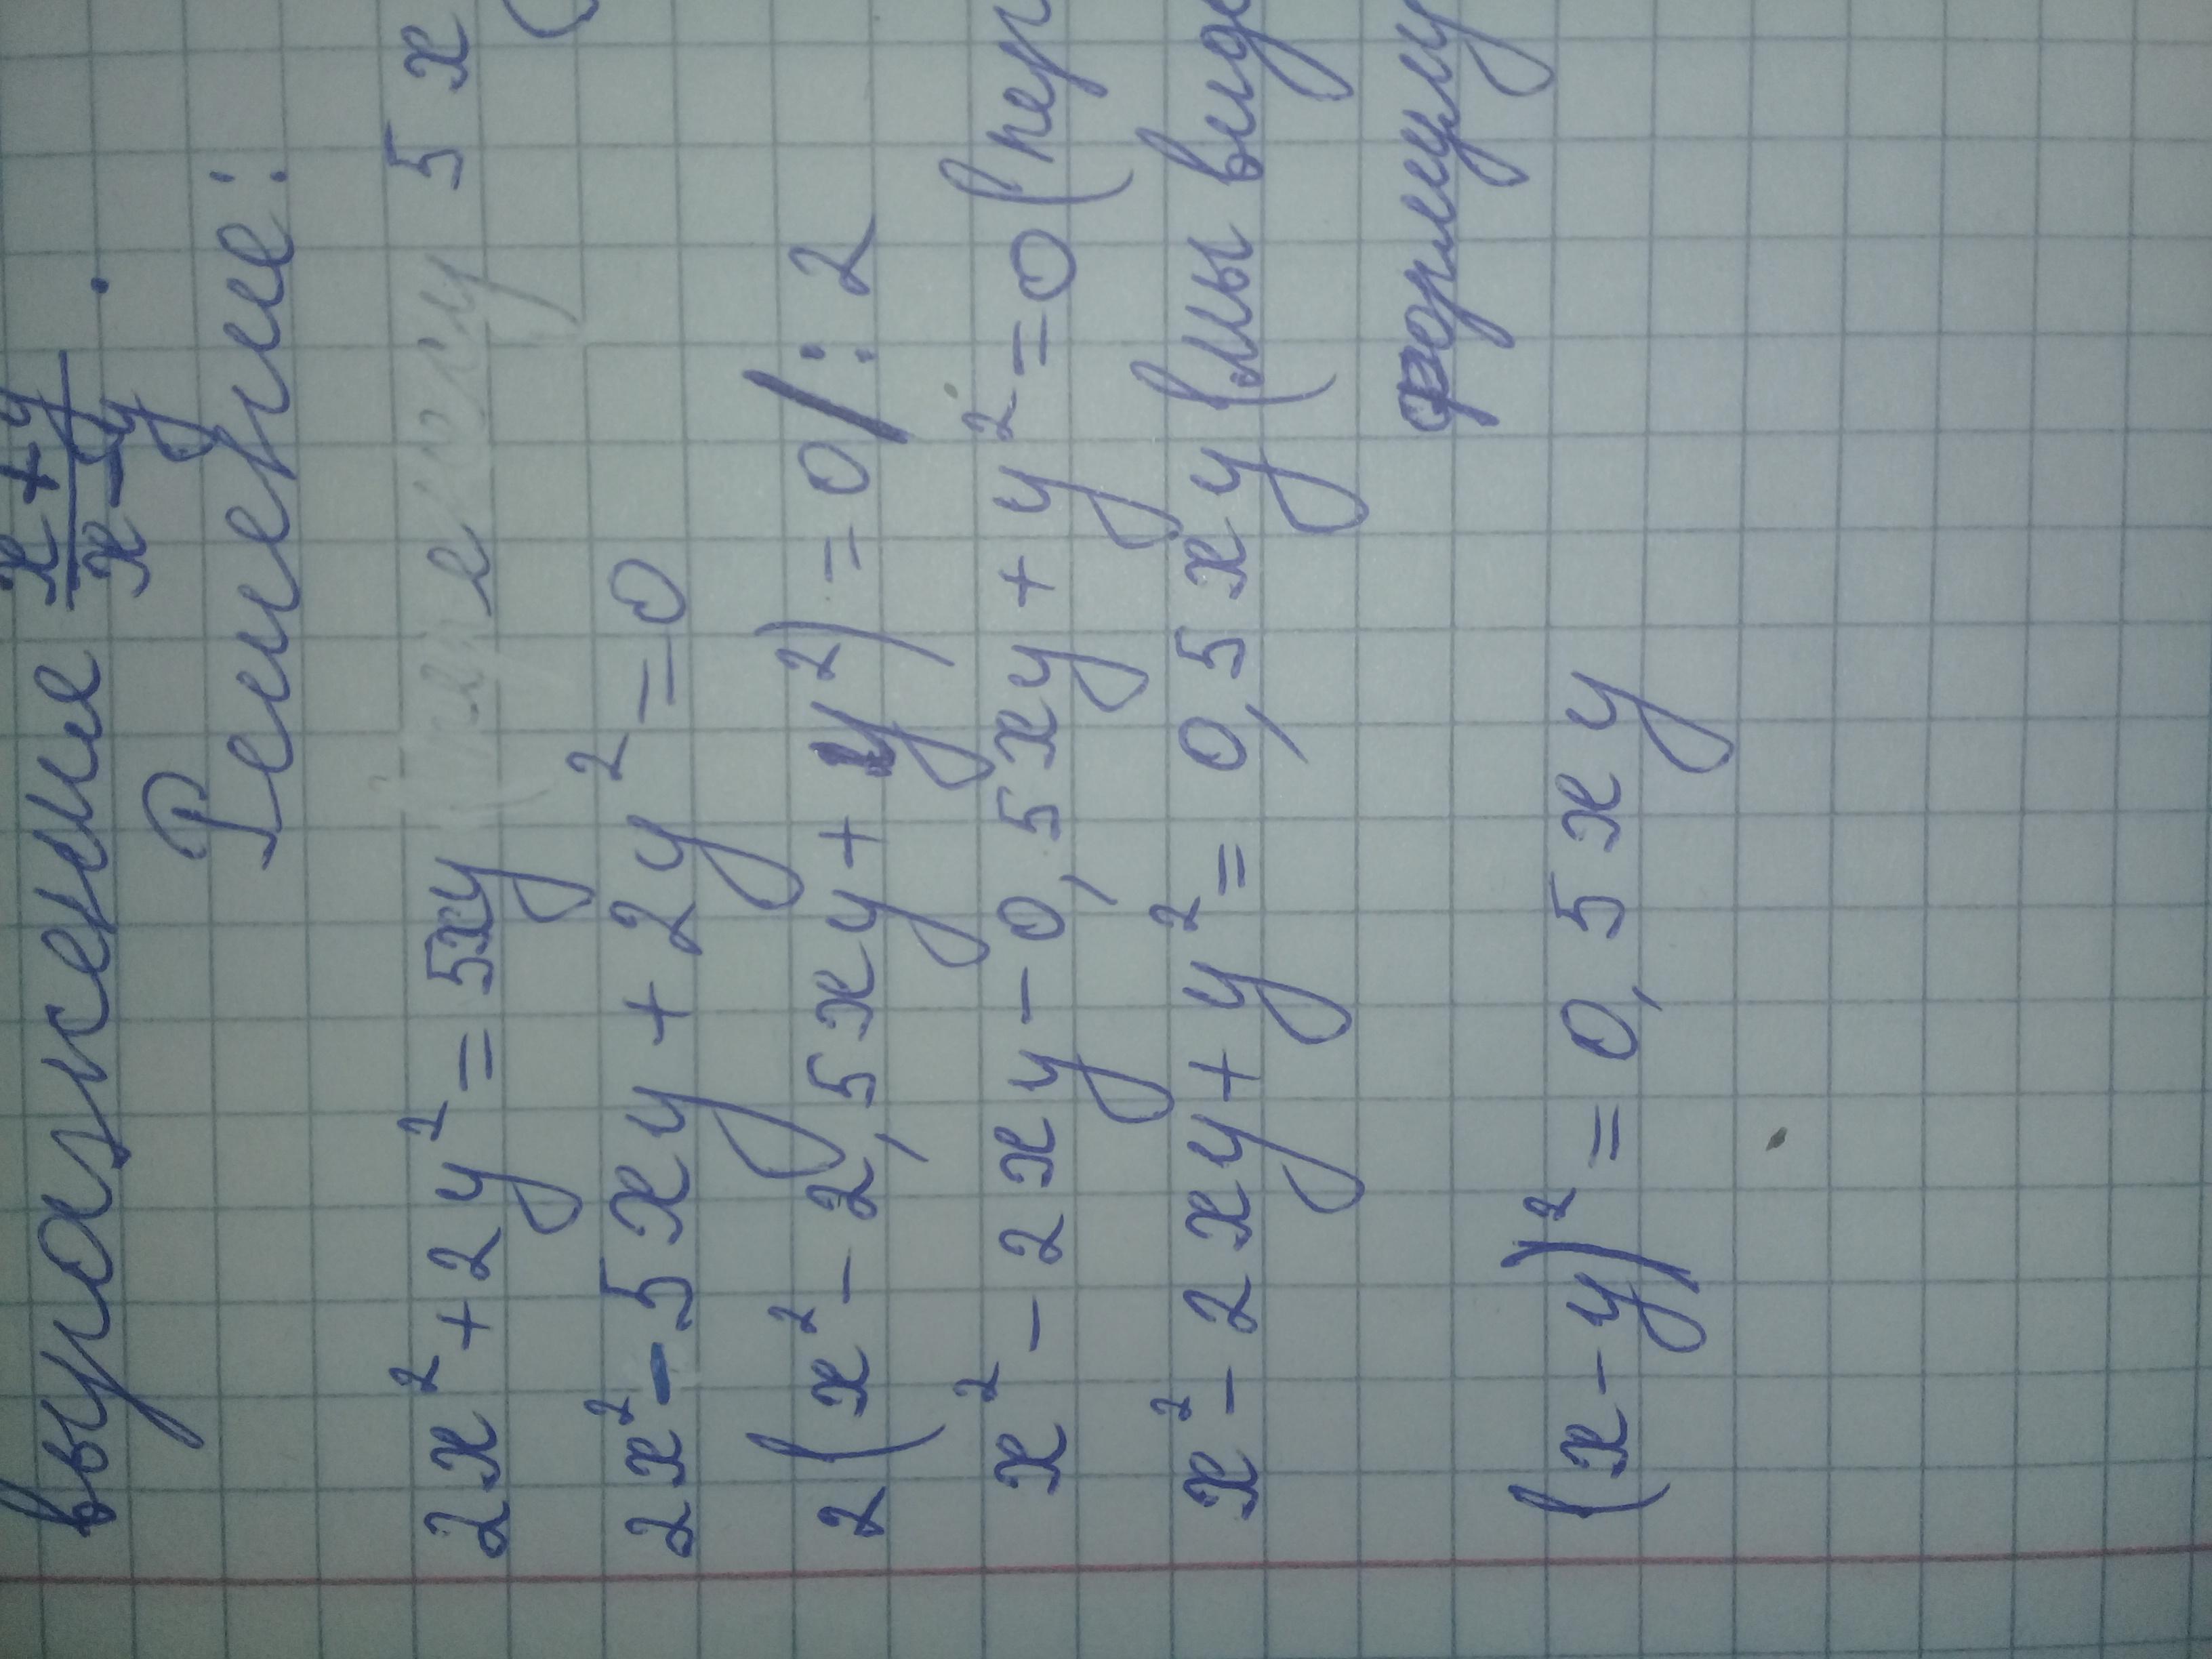 выражение x+y/x-y.
Решение:
2x²+2y²=5xy 5x
2x²-5xy+2y²=0
2(x²-2,5xy+y²)=0/:2
x²-2xy-0,5xy+y²=0(пер
x²-2xy+y²=0,5xy(мы виде
формулу
(x-y)²=0,5xy